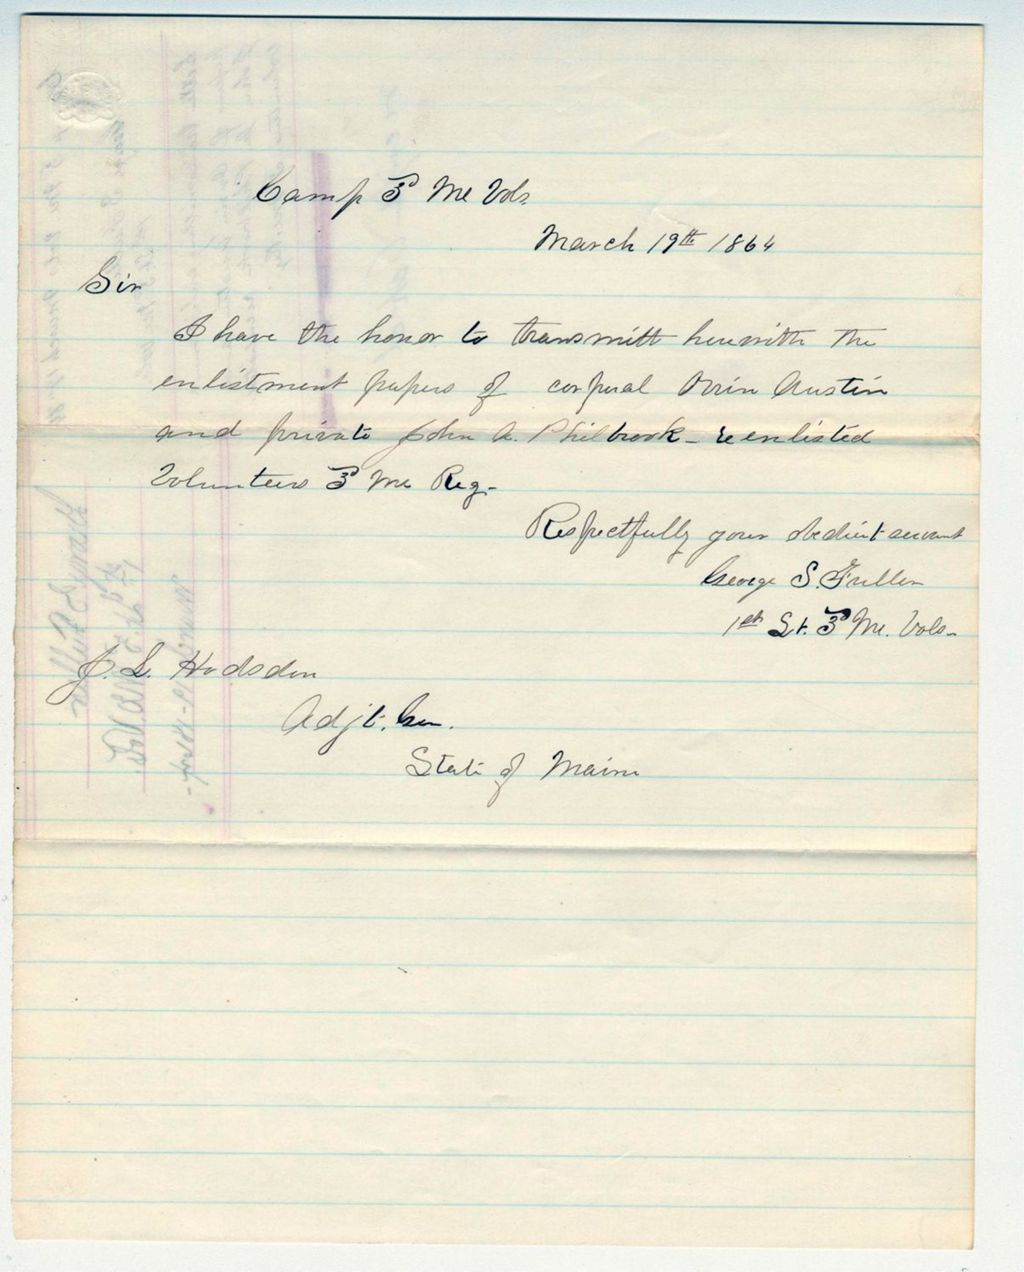 Camp 3d Me Vols.
March 19th 1864
Sir
I have the honor to transmitt herewith the
enlistment papers of corporal Orrin Austin
and private John A. Philbrook - reenlisted
Volunteers 3d Me Reg.
Respectfully your obedient servant
George S. Fuller
1st Lt. 3d Me. Vols.
J. L. Hodsdon
Adjt. Gen.
State of Maine